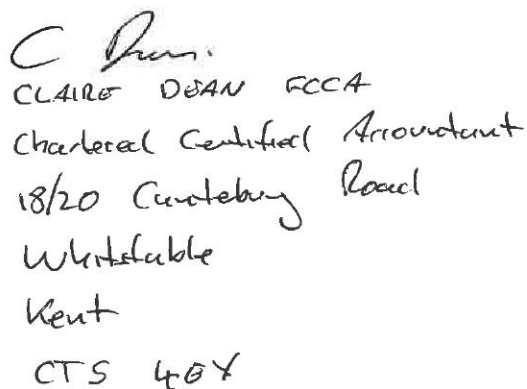 C Dean.
CLAIRE DEAN FCCA
Chartered Certified Accountant
18/20 Canterbury Road
Whitstable
Kent
CT5 4EY